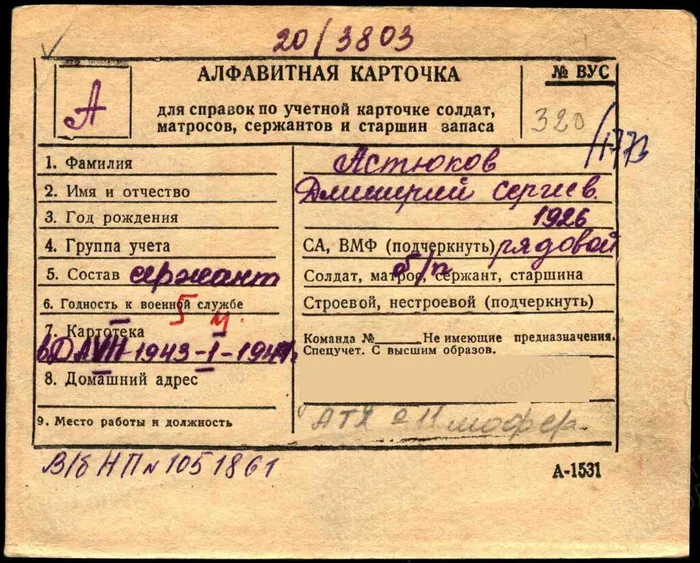 20/3803
А
АЛФАВИТНАЯ КАРТОЧКА
для справок по учетной карточке солдат,
матросов, сержантов и старшин запаса
№ ВУС
320/1773
1. Фамилия Астюков
2. Имя и отчество Дмитрий Сергеев.
3. Год рождения 1926
4. Группа учета СА, ВМФ (подчеркнуть) рядовой
5. Состав сержант Солдат, матрос, сержант, старшина
б/п
6. Годность к военной службе Строевой, нестроевой (подчеркнуть)
7. Картотека Команда № Не имеющие предназначения.
Спецучет. С высшим образов.
VII-1943-I-1944
8. Домашний адрес
9. Место работы и должность АТХ шофер.
В/б НП № 1051861
А-1531